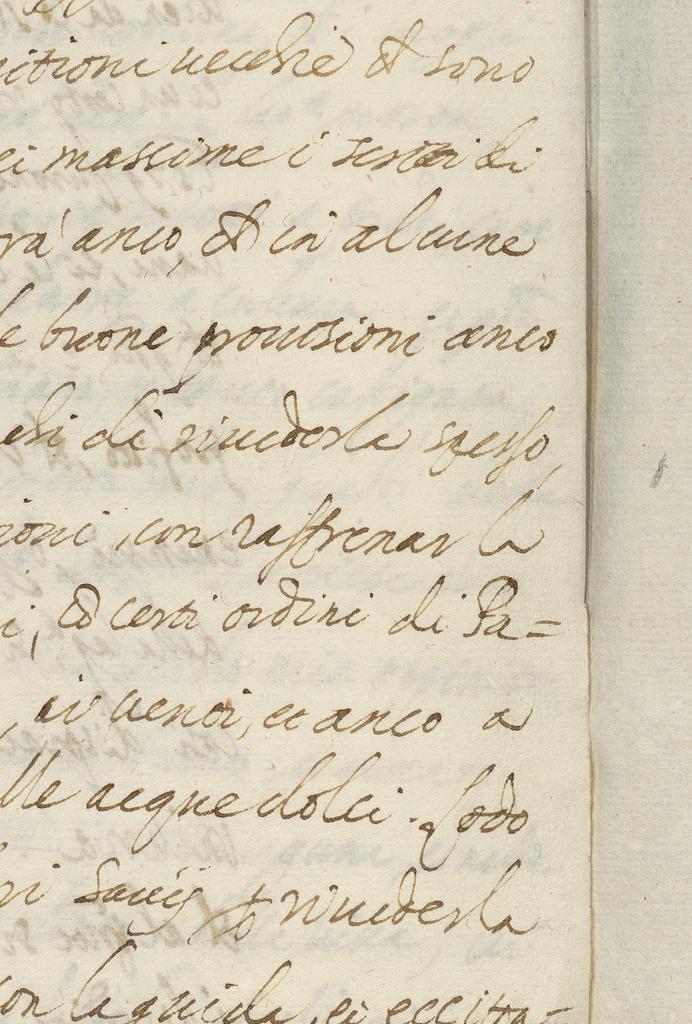 itioni uecchie & sono
ei massime i
rà anco, & in alcune
le buone prouisioni anco
di riuederla spesso,
ioni, con raffrenar la
i, et certi ordini di Pa=
, ai uenti, et anco a
lle acque dolci. Lodo
ri Sauij riuederla
con la guida, et eccitta=